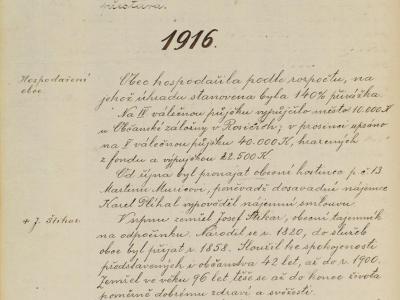 přístava.
1916.
Hospodaření
obce
Obec hospodařila podle rozpočtu, na
jehož úhradu stanovena byla 140% přirážka.
Na IV válečnou půjčku vypůjčilo město 10.000 K
u Občanské záložny v Rosicích; v prosinci upsáno
na V válečnou půjčku 40.000 K, hrazených
z fondu a výpůjkou 22.500 K
Od října byl pronajat obecní hostinec p. č. 13
Martinu Muricovi, poněvadž dosavadní nájemce
Karel Stihal vypověděl nájemní smlouvu.
+ J. Štikar.
V srpnu zemřel Josef Štikar, obecní tajemník
na odpočinku. Narodil se r. 1820, do služeb
obce byl přijat r. 1858. Sloužil ke spokojenosti
představených i občanstva 42 let, až do r. 1900.
Zemřel ve věku 96 let těše se až do konce života
poměrně dobrému zdraví a svěžesti.